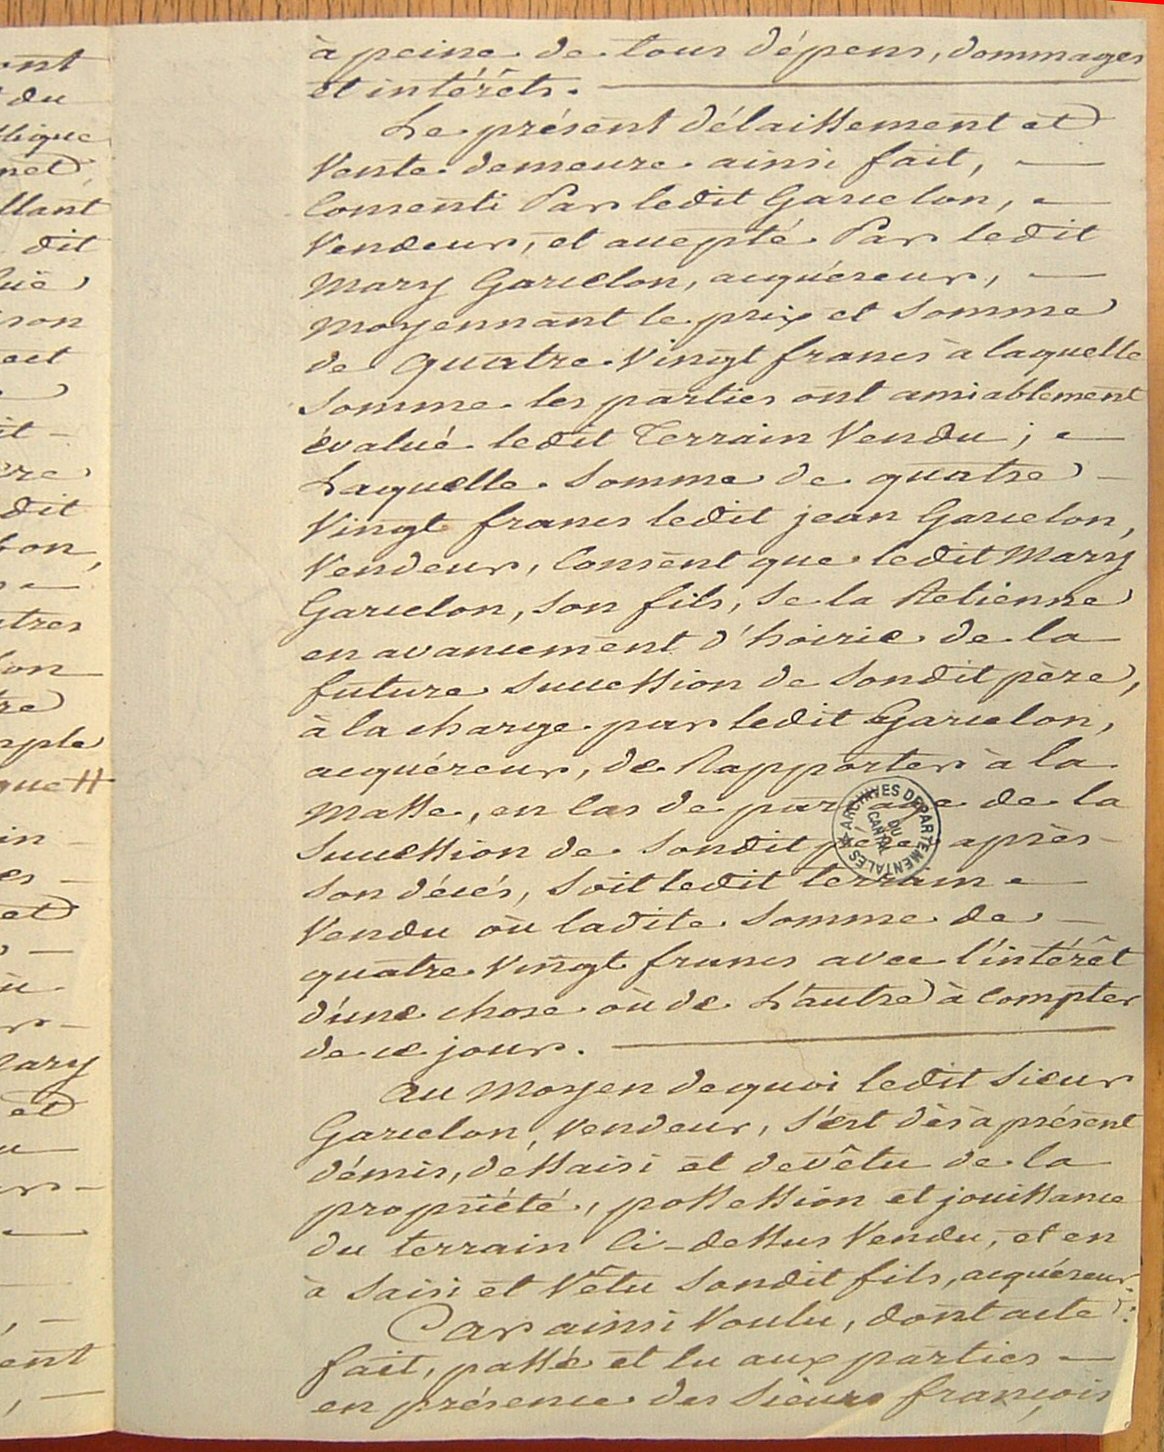 à peine de tous dépens, dommages
et intérêts.
Le présent délaissement et
Vente demeure ainsi fait,
Consenti Par ledit Garcelon,
Vendeur, et accepté Par ledit
Mary Garcelon, acquéreur,
Moyennant le prix et somme
de quatre Vingt francs à laquelle
somme les parties ont amiablement
évalué ledit Terrain Vendu ;
Laquelle somme de quatre
Vingt francs ledit jean Garcelon,
Vendeur, Consent que ledit Mary
Garcelon, son fils, se la Retienne
en avancement d'hoirie de la
future succession de sondit père,
à la charge par ledit Garcelon,
acquéreur, de Rapporter à la
Masse, en Cas de partage de la
succession de sondit père, après
son décés, soit ledit terrain
Vendu où ladite somme de
quatre Vingt francs avec l'intérêt
d'une chose où de L'autre à Compter
de ce jour.
Au Moyen de quoi ledit sieur
Garcelon, Vendeur, s'est dès à présent
démis, déssaisi et devêtu de la
propriété, possession et jouissance
du terrain Ci-dessus Vendu, et en
à saisi et Vêtu sondit fils, acquéreur.
Car ainsi Voulu, dont acte :
fait, passé et lu aux parties
en présence des sieurs françois
ARCHIVES DEPARTEMENTALES
DU
CANTAL
ont
du
et
llant
dit
son
ère
dit
lon
Mary
et
ent